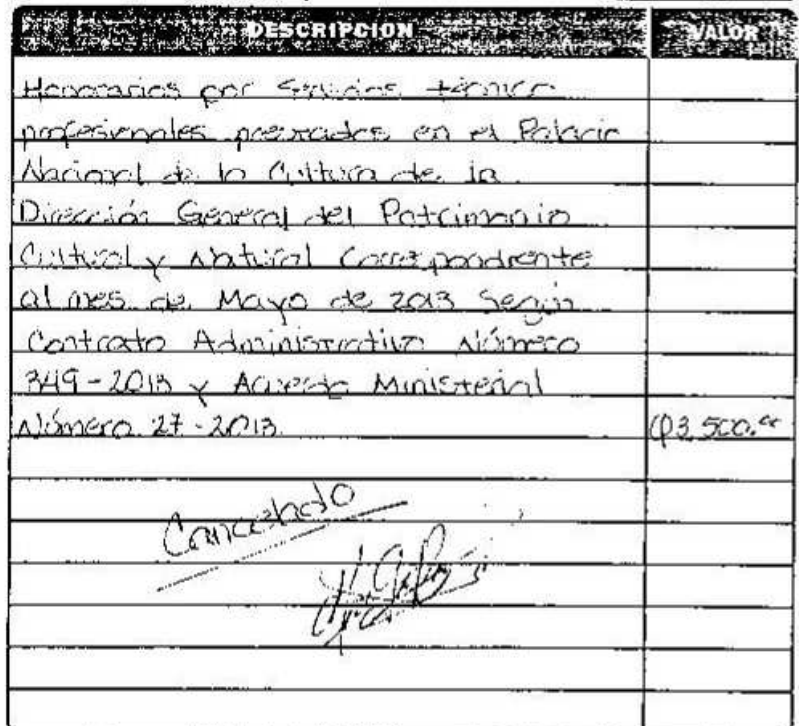 DESCRIPCION VALOR
Honorarios por Servicios técnico
profesionales prestados en el Palacio
Nacional de la Cultura de la
Dirección General del Patrimonio
Cultural y Natural Correspondiente
al mes de Mayo de 2013 Según
Contrato Administrativo Número
349-2013 y Acuerdo Ministerial
Número 27-2013. Q3,500.00
Cancelado